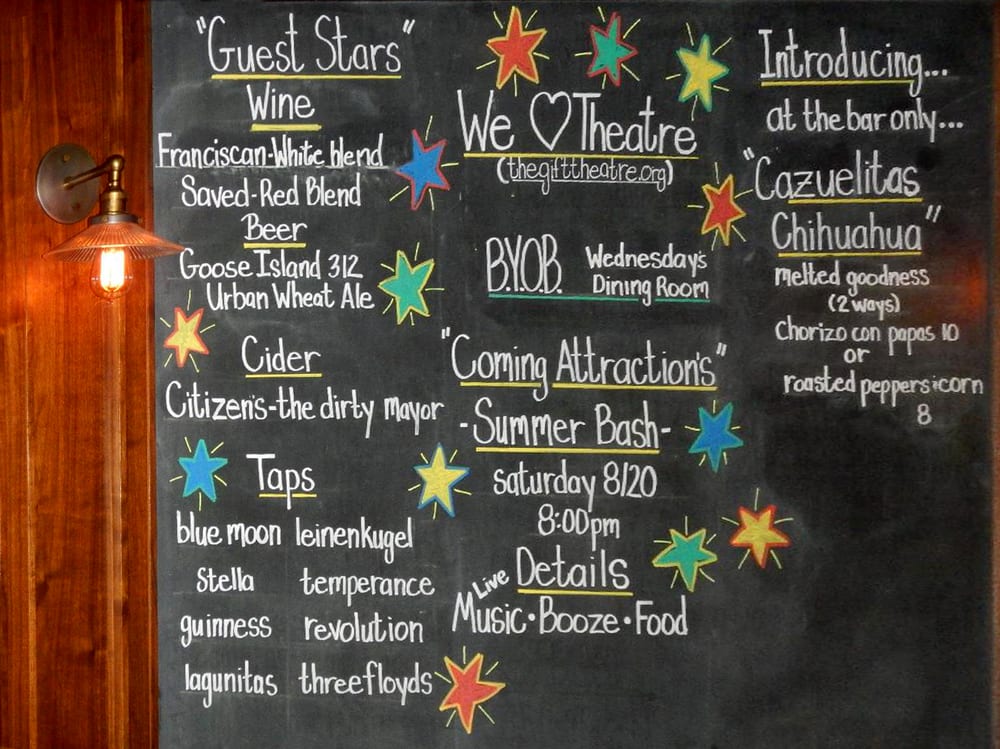 "Guest Stars"
Wine
Franciscan-White blend
Saved-Red Blend
Beer
Goose Island 312
Urban Wheat Ale
Cider
Citizen's-the dirty mayor
Taps
blue moon leinenkugel
stella temperance
guinness revolution
lagunitas three floyds
We ♡ Theatre
(thegifttheatre.org)
B.Y.O.B. Wednesday's
Dining Room
"Coming Attraction's"
-Summer Bash-
saturday 8/20
8:00pm
Details
Live
Music•Booze•Food
Introducing...
at the bar only...
"Cazuelitas
Chihuahua"
melted goodness
(2 ways)
Chorizo con papas 10
or
roasted peppers & corn
8